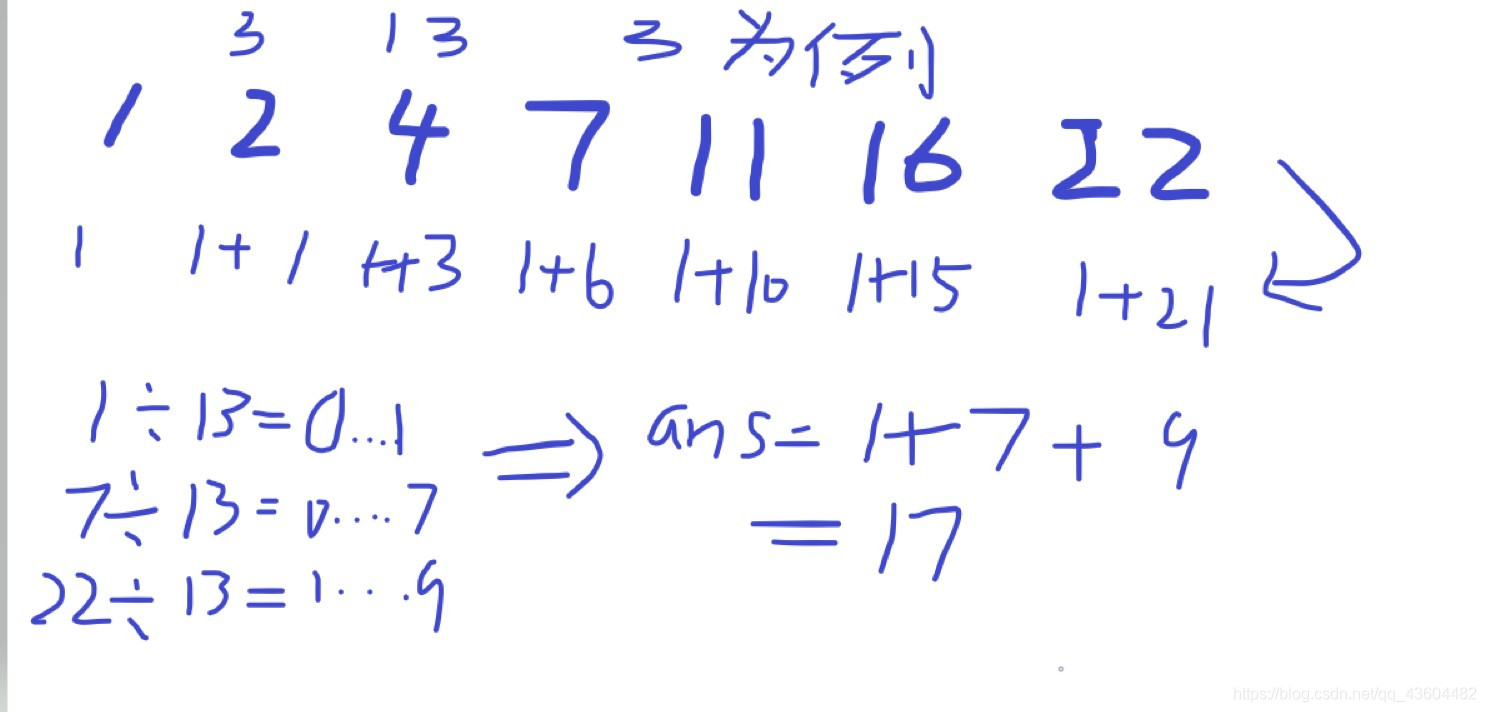 3 13 3 为例
1 2 4 7 11 16 22
1 1+1 1+3 1+6 1+10 1+15 1+21
1÷13=0...1
7÷13=0....7
22÷13=1...9
⇒ ans=1+7+9
=17
https://blog.csdn.net/qq_43604482